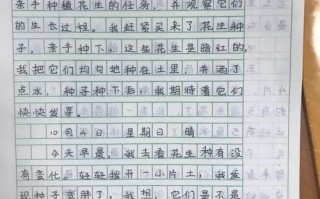 亲手种植花生的任务，并观察它们
的生长过程。我赶紧买来了花生种
子，亲手种下，这些花生是暗红的，
我把它们均匀地种在土里，并洒了
点水，种子种下后，我期待着它们
快快发芽。
10月4日 星期日 晴
今天早晨，我去看花生种有没
有变化，轻轻拨开一小片土，我发
现种子变胖了，我想，它们是不是